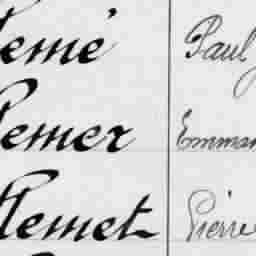 lemé Paul
lemer Emman
lemet Pierre